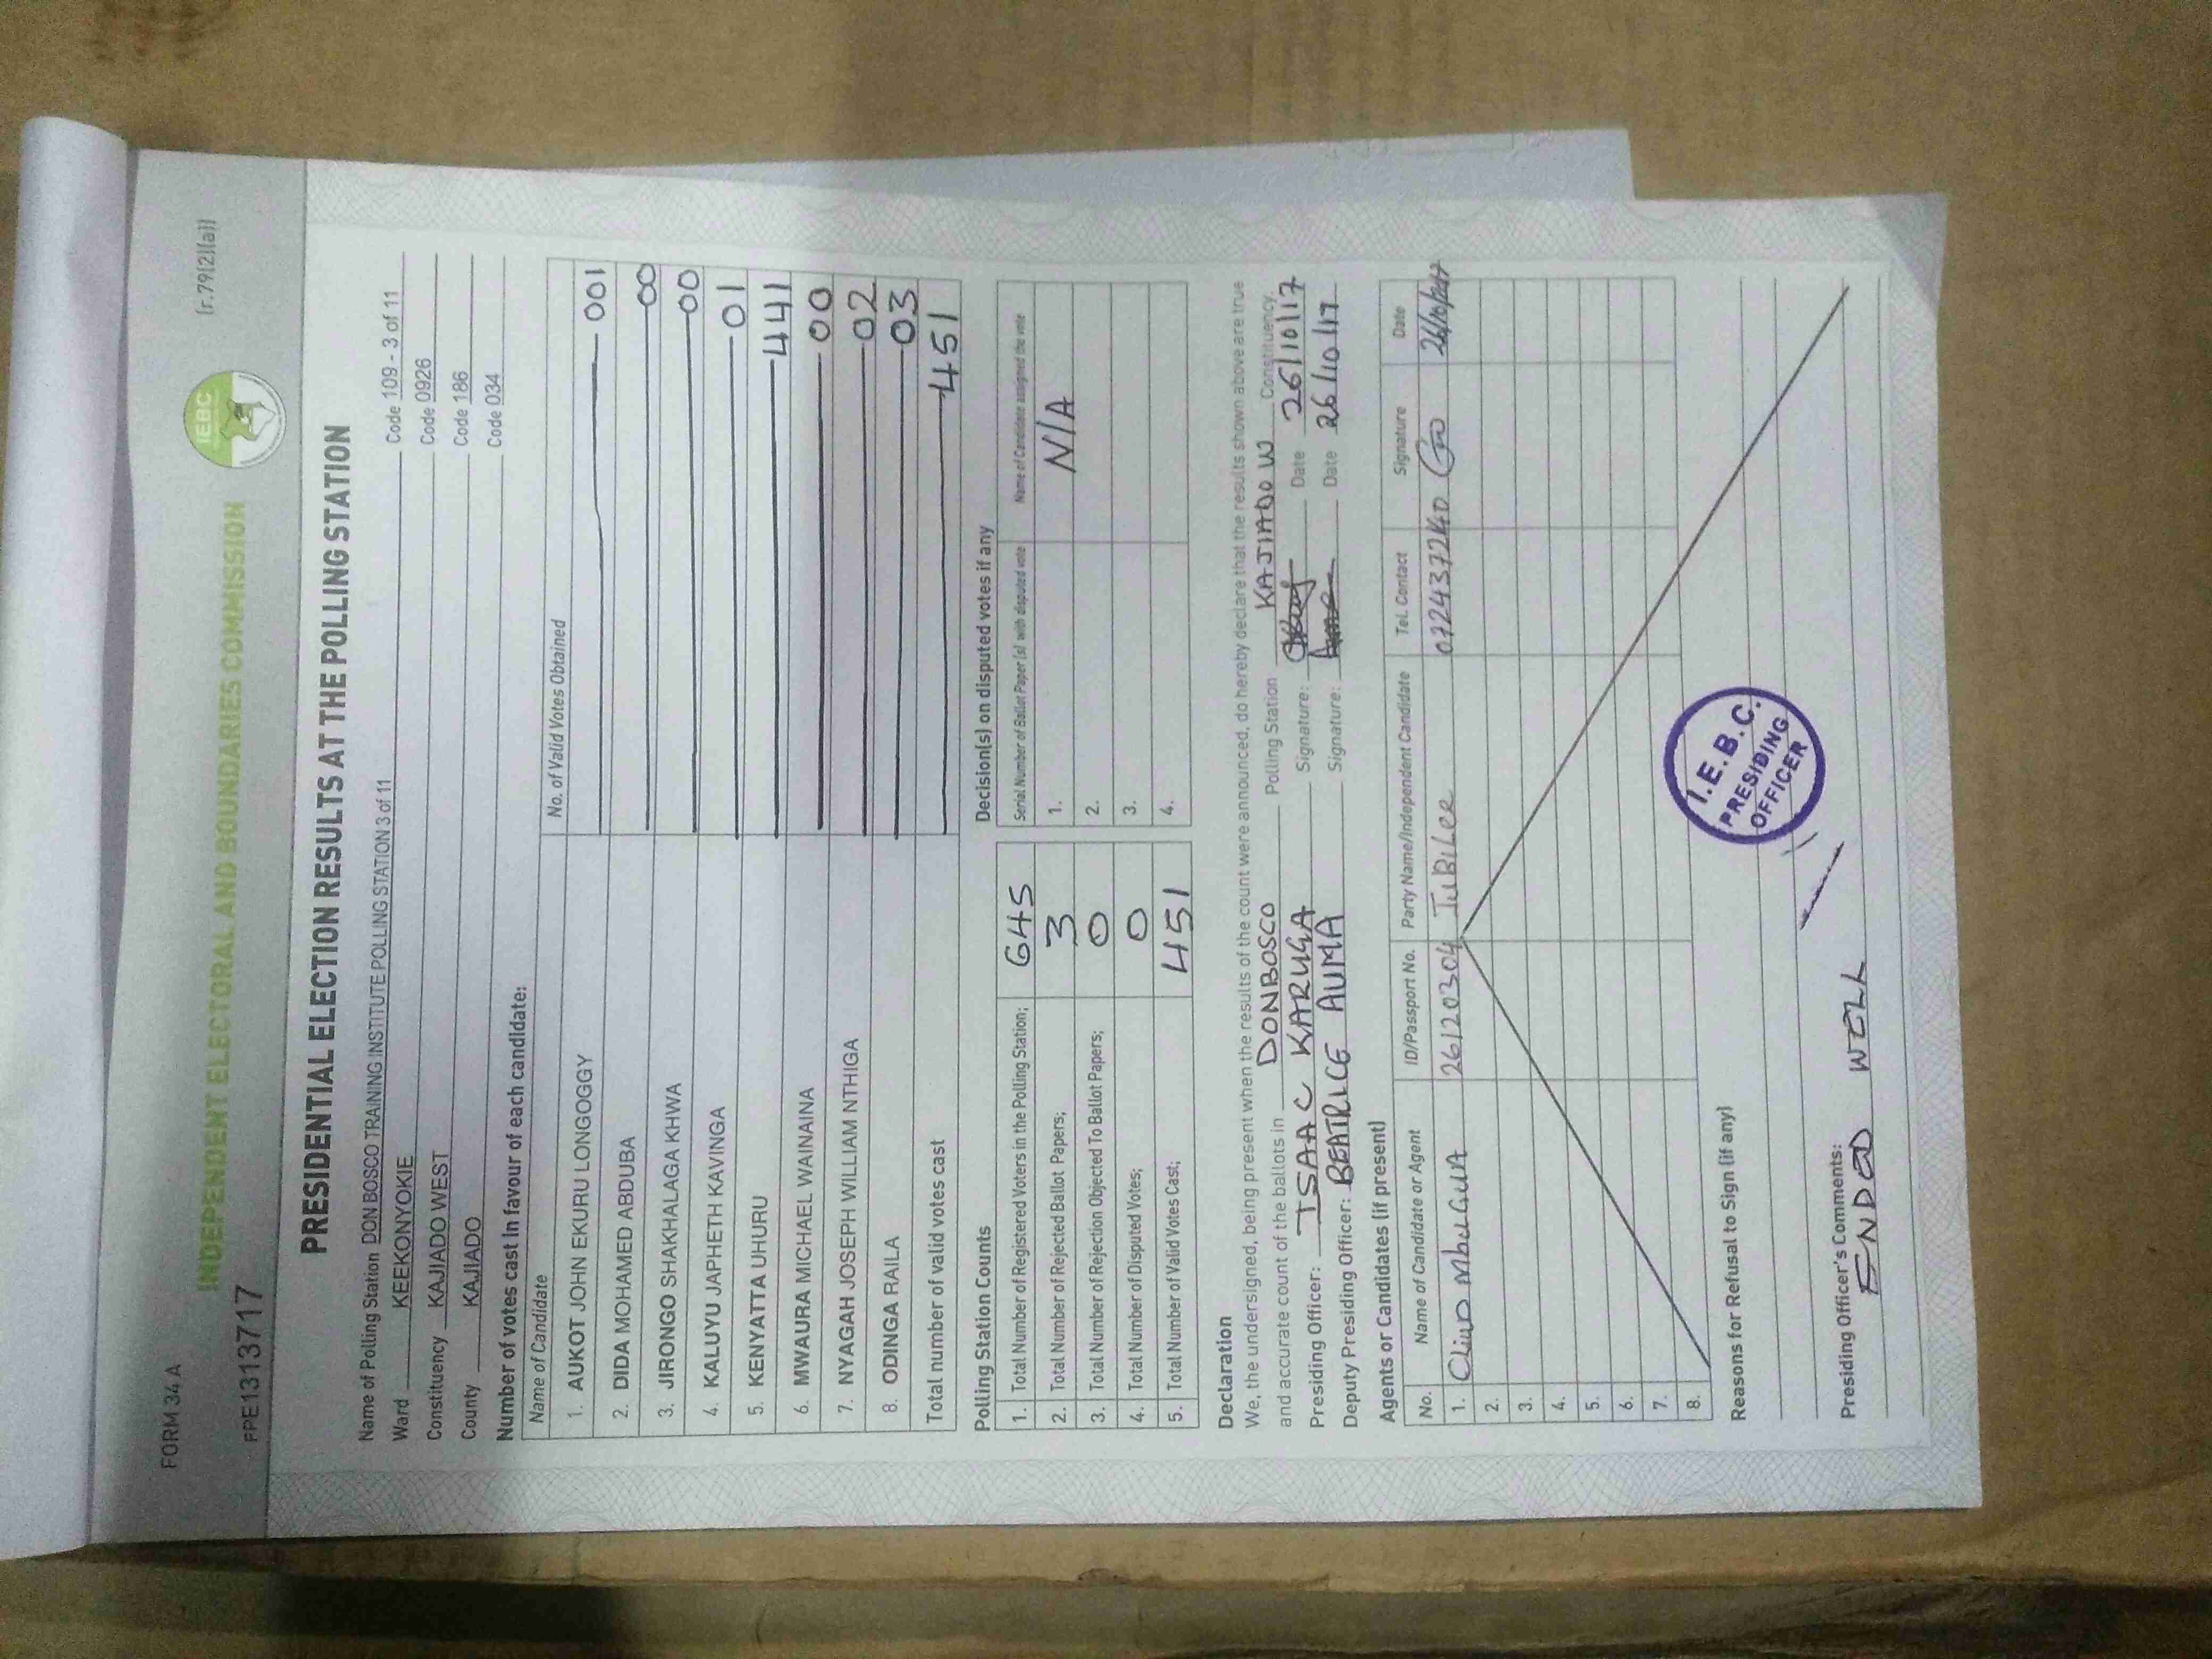 FORM 34 A
(r.79(2)(a))
INDEPENDENT ELECTORAL AND BOUNDARIES COMMISSION
IEBC
FPE1313717
PRESIDENTIAL ELECTION RESULTS AT THE POLLING STATION
Name of Polling Station DON BOSCO TRAINING INSTITUTE POLLING STATION 3 of 11 Code 109 - 3 of 11
Ward KEEKONYOKIE Code 0926
Constituency KAJIADO WEST Code 186
County KAJIADO Code 034
Number of votes cast in favour of each candidate:
Name of Candidate No. of Valid Votes Obtained
1. AUKOT JOHN EKURU LONGOGGY 001
2. DIDA MOHAMED ABDUBA 00
3. JIRONGO SHAKHALAGA KHWA 00
4. KALUYU JAPHETH KAVINGA 01
5. KENYATTA UHURU 441
6. MWAURA MICHAEL WAINAINA 00
7. NYAGAH JOSEPH WILLIAM NTHIGA 02
8. ODINGA RAILA 03
Total number of valid votes cast 451
Polling Station Counts
1. Total Number of Registered Voters in the Polling Station; 645
2. Total Number of Rejected Ballot Papers; 3
3. Total Number of Rejection Objected To Ballot Papers; 0
4. Total Number of Disputed Votes; 0
5. Total Number of Valid Votes Cast; 451
Decision(s) on disputed votes if any
Serial Number of Ballot Paper (s) with disputed vote Name of Candidate assigned the vote
1. N/A
2.
3.
4.
Declaration
We, the undersigned, being present when the results of the count were announced, do hereby declare that the results shown above are true
and accurate count of the ballots in DONBOSCO Polling Station KAJIADO W Constituency.
Presiding Officer: ISAAC KARUGA Signature: Date 26/10/17
Deputy Presiding Officer: BEATRICE AUMA Signature: Date 26/10/17
Agents or Candidates (if present)
No. Name of Candidate or Agent ID/Passport No. Party Name/Independent Candidate Tel. Contact Signature Date
1. MbuGUA 26120304 JUBILee 0724377240 26/10/2017
2.
3.
4.
5.
6.
7.
8.
Reasons for Refusal to Sign (if any)
I.E.B.C.
PRESIDING
OFFICER
Presiding Officer's Comments:
ENDED WELL